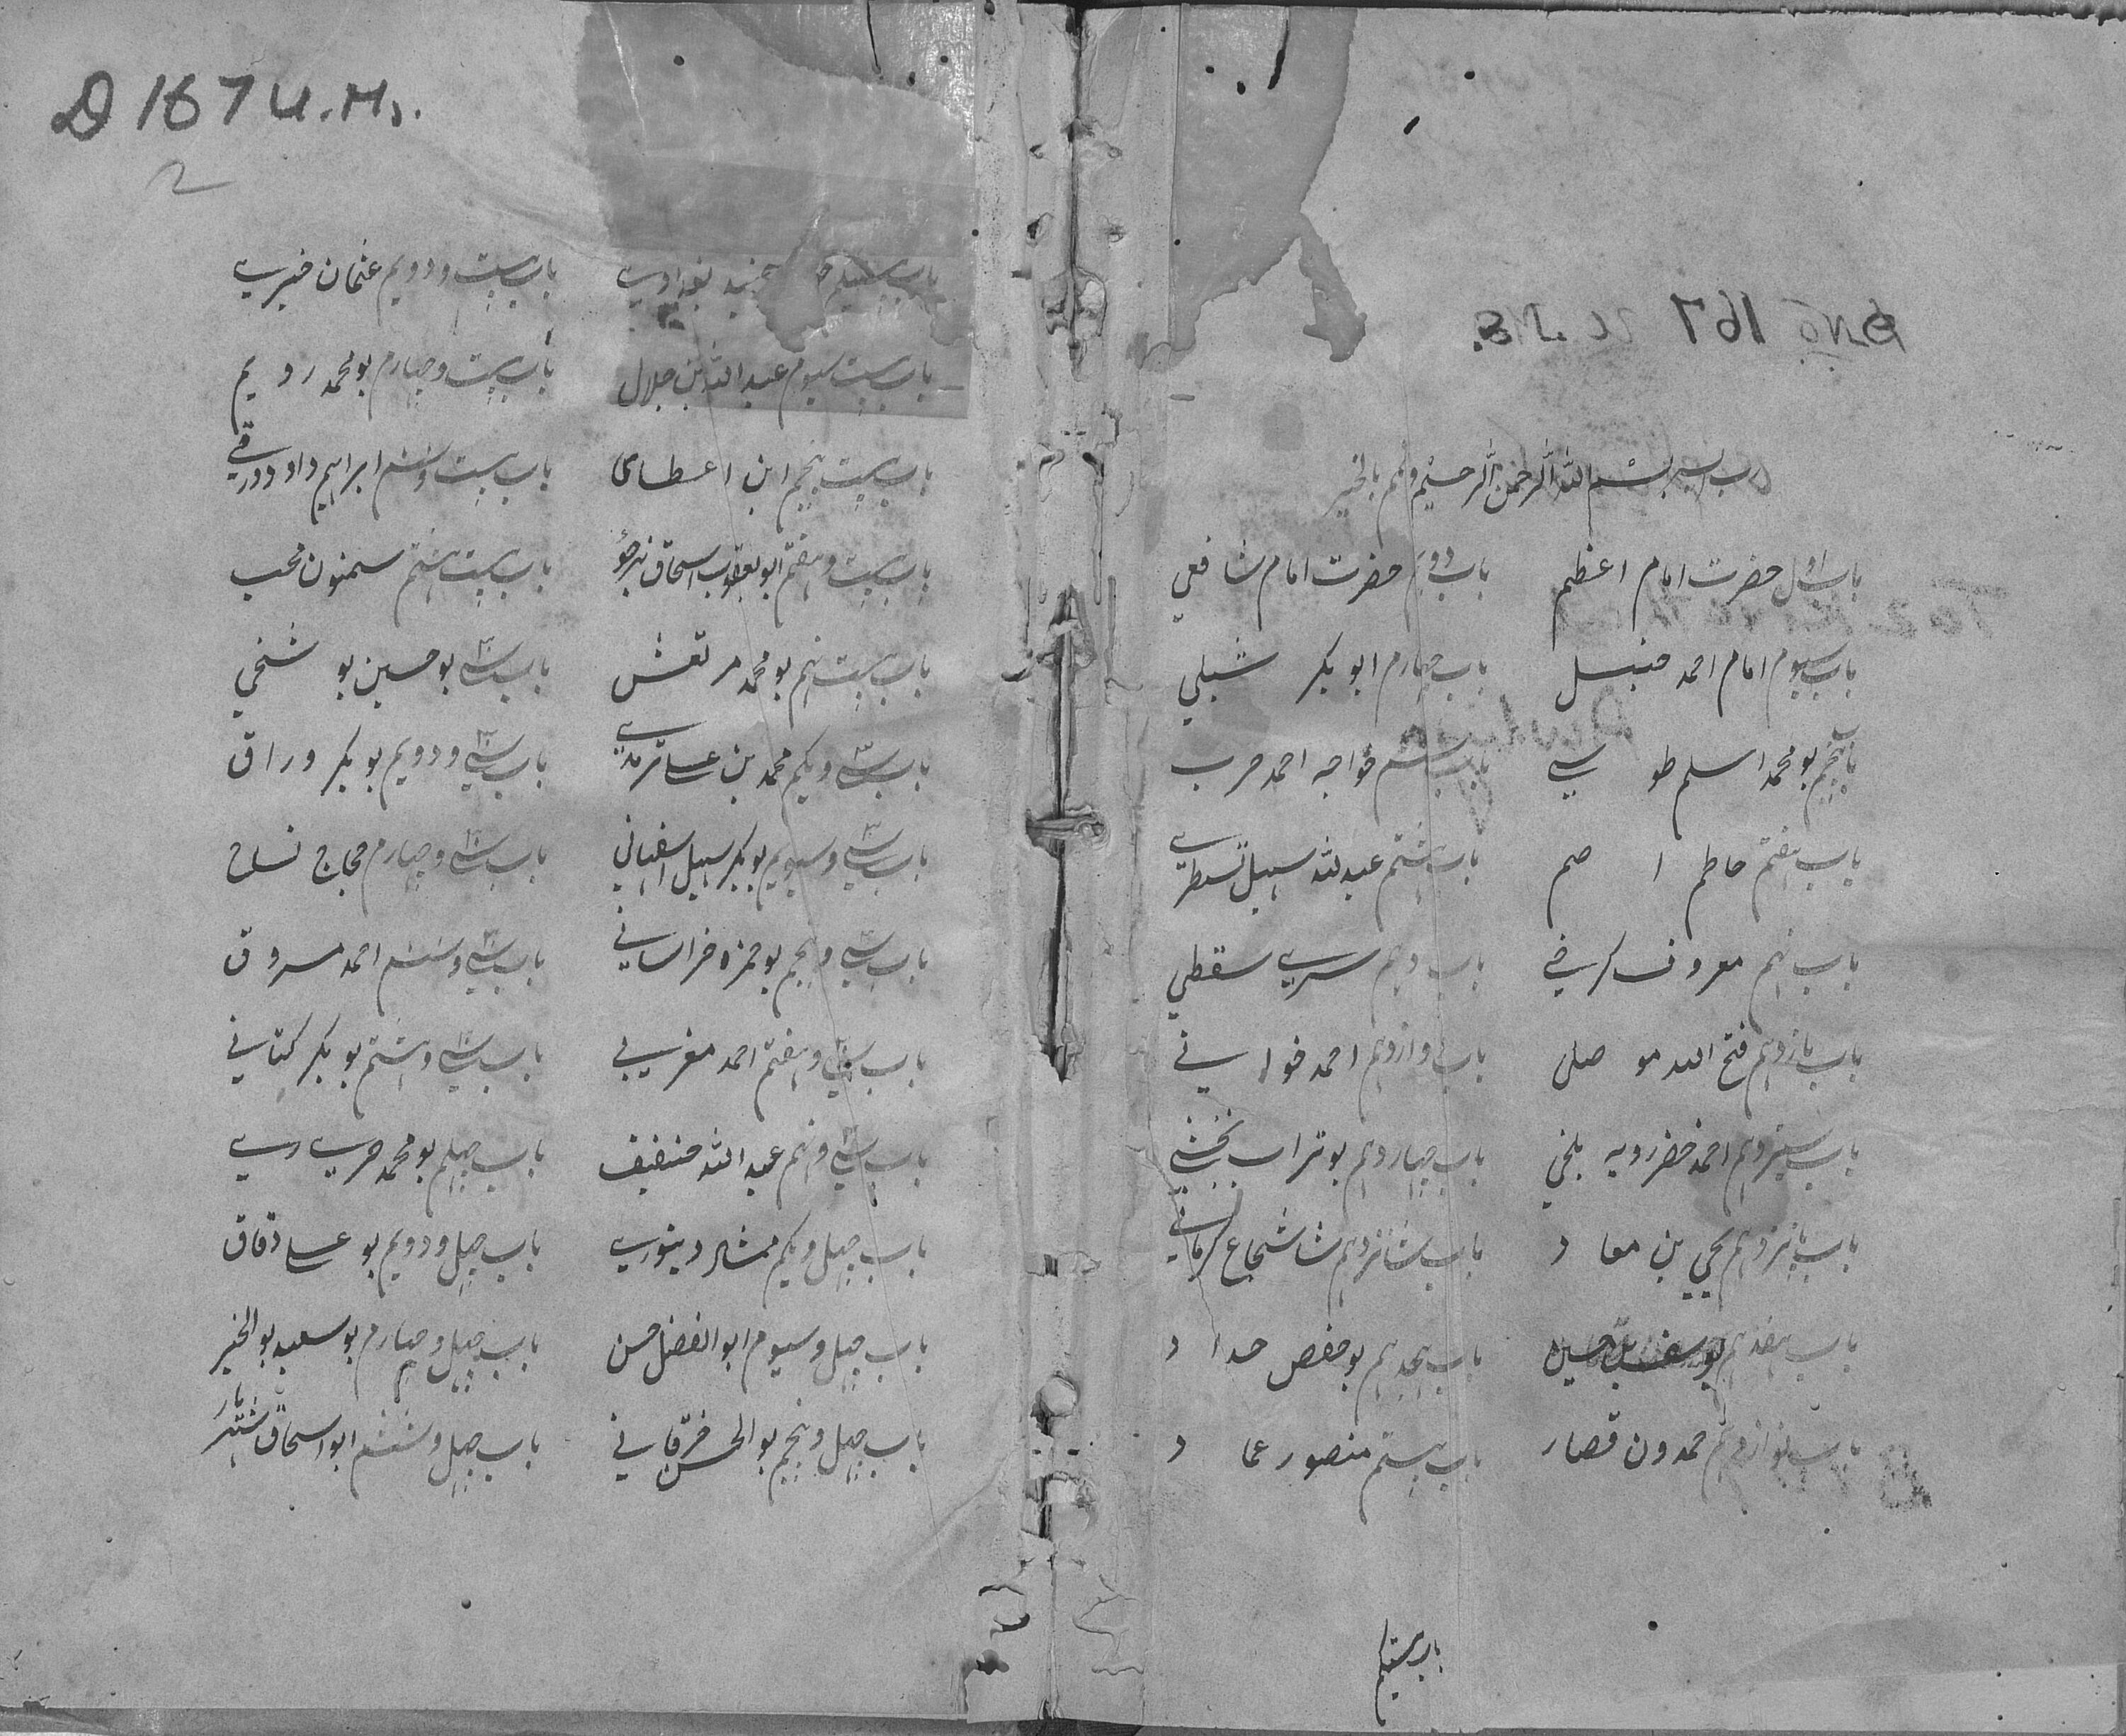 رب یسر بسم الله الرحمن الرحیم وتمم بالخیر
باب اول حضرت امام اعظم باب دویم حضرت امام شافعی
باب سیوم امام احمد حنبل باب چهارم ابو بکر شبلی
باب پنجم بو محمد اسلم طوسی باب ششم خواجه احمد حرب
باب هفتم حاطم اصم باب هشتم عبدالله سهیل تسطری
باب نهم معروف کرخی باب دهم سری سقطی
باب یازدهم فتح الله موصلی باب دوازدهم احمد خواسنی
باب سیزدهم احمد خضرویه بلخی باب چهاردهم بوتراب نخشبی
باب پانزدهم یحیی بن معاد باب شانزدهم شاشجاع کرمانی
باب هفدهم یوسف بن حسین باب هجدهم بو حفص حداد
باب نوازدهم حمدون قصار باب بیستم منصور عماد
باب بیستیکم
D 167 U.M.
2
باب جنید بغدادی باب بیست ودویم عثمان خیری
باب بیست سیوم عبدالله بن جلال باب بیست وچهارم بو محمد رویم
باب بیست پنجم ابن اعطای باب بیست وششم ابراهیم داود ورقی
باب بیست وهفتم ابو یعقوب اسحاق نهرجو باب بیست هشتم سمنون محب
باب بیست نهم بو محمد مرتعش باب سی بو حسین بوشنخی
باب سی ویکم محمد بن علی ترمدی باب سی ودویم بو بکر وراق
باب سی وسیویم بو بکر سهیل اسفهانی باب سی وچهارم حجاج نساج
باب سی وپنجم بو حمزه خراسانی باب سی وششم احمد مسروق
باب سی وهفتم احمد مغربی باب سی وهشتم بو بکر کتانی
باب سی ونهم عبدالله حنفیف باب چهلم بو محمد حریری
باب چهل ویکم ممشاد دینوری باب چهل ودویم بو علی دقاق
باب چهل وسیوم ابوالفضل حسن باب چهل وچهارم بو سعید بوالخیر
باب چهل وپنجم بوالحسن خرقانی باب چهل وششم ابو اسحاق شهریار